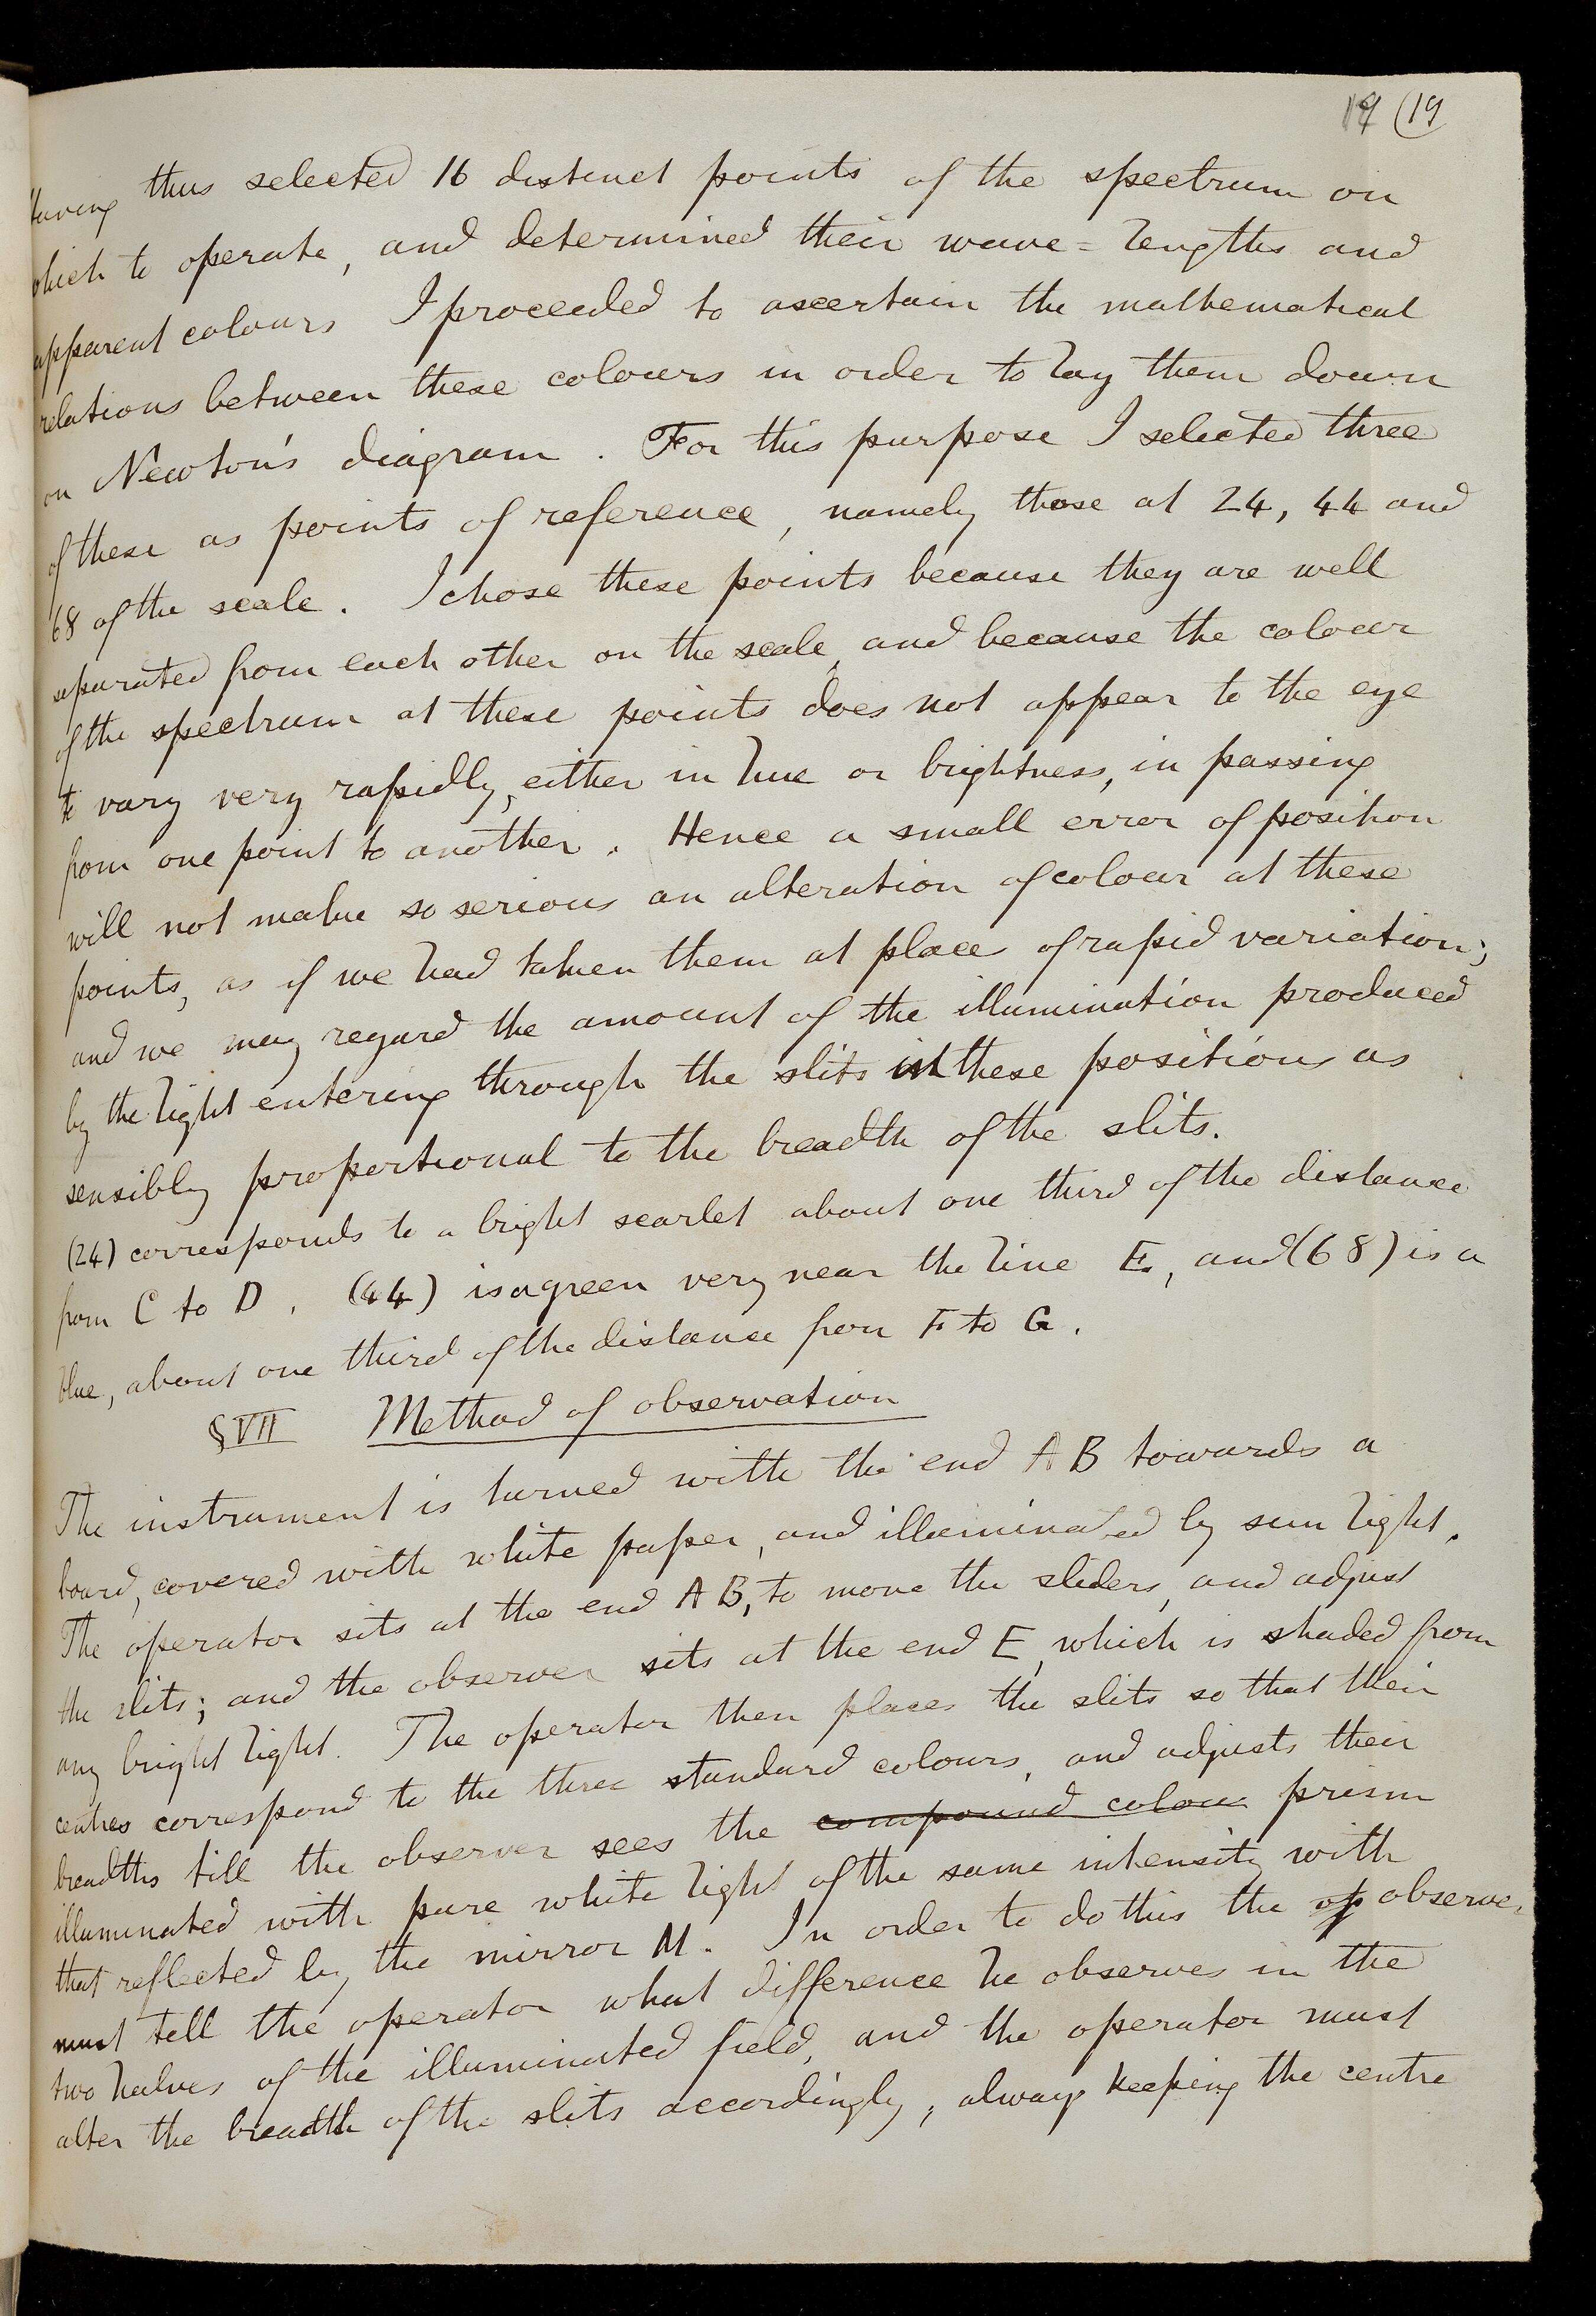 19 (19
Having thus selected 16 distinct points of the spectrum on
which to operate, and determined their wave=lengths and
apparent colours I proceeded to ascertain the mathematical
relations between these colours in order to lay them down
on Newton's diagram. For this purpose I selected three
of these as points of reference, namely those at 24, 44 and
68 of the scale. I chose these points because they are well
separated from each other on the scale, and because the colour
of the spectrum at these points does not appear to the eye
to vary very rapidly, either in hue or brightness, in passing
from one point to another. Hence a small error of position
will not make so serious an alteration of colour at these
points, as if we had taken them at places of rapid variation;
and we may regard the amount of the illumination produced
by the light entering through the slits in these positions as
sensibly proportional to the breadth of the slits.
(24) corresponds to a bright scarlet about one third of the distance
from C to D, (44) is a green very near the line E, and (68) is a
blue, about one third of the distance from F to G.
§VII Method of observation
The instrument is turned with the end AB towards a
board, covered with white paper, and illuminated by sun light.
The operator sits at the end AB, to move the sliders, and adjust
the slits; and the observer sits at the end E, which is shaded from
any bright light. The operator then places the slits so that their
centres correspond to the three standard colours, and adjusts their
breadths till the observer sees the compound colour prism
illuminated with pure white light of the same intensity with
that reflected by the mirror M. In order to do this the op observer
must tell the operator what difference he observes in the
two halves of the illuminated field, and the operator must
alter the breadth of the slits accordingly, always keeping the centre